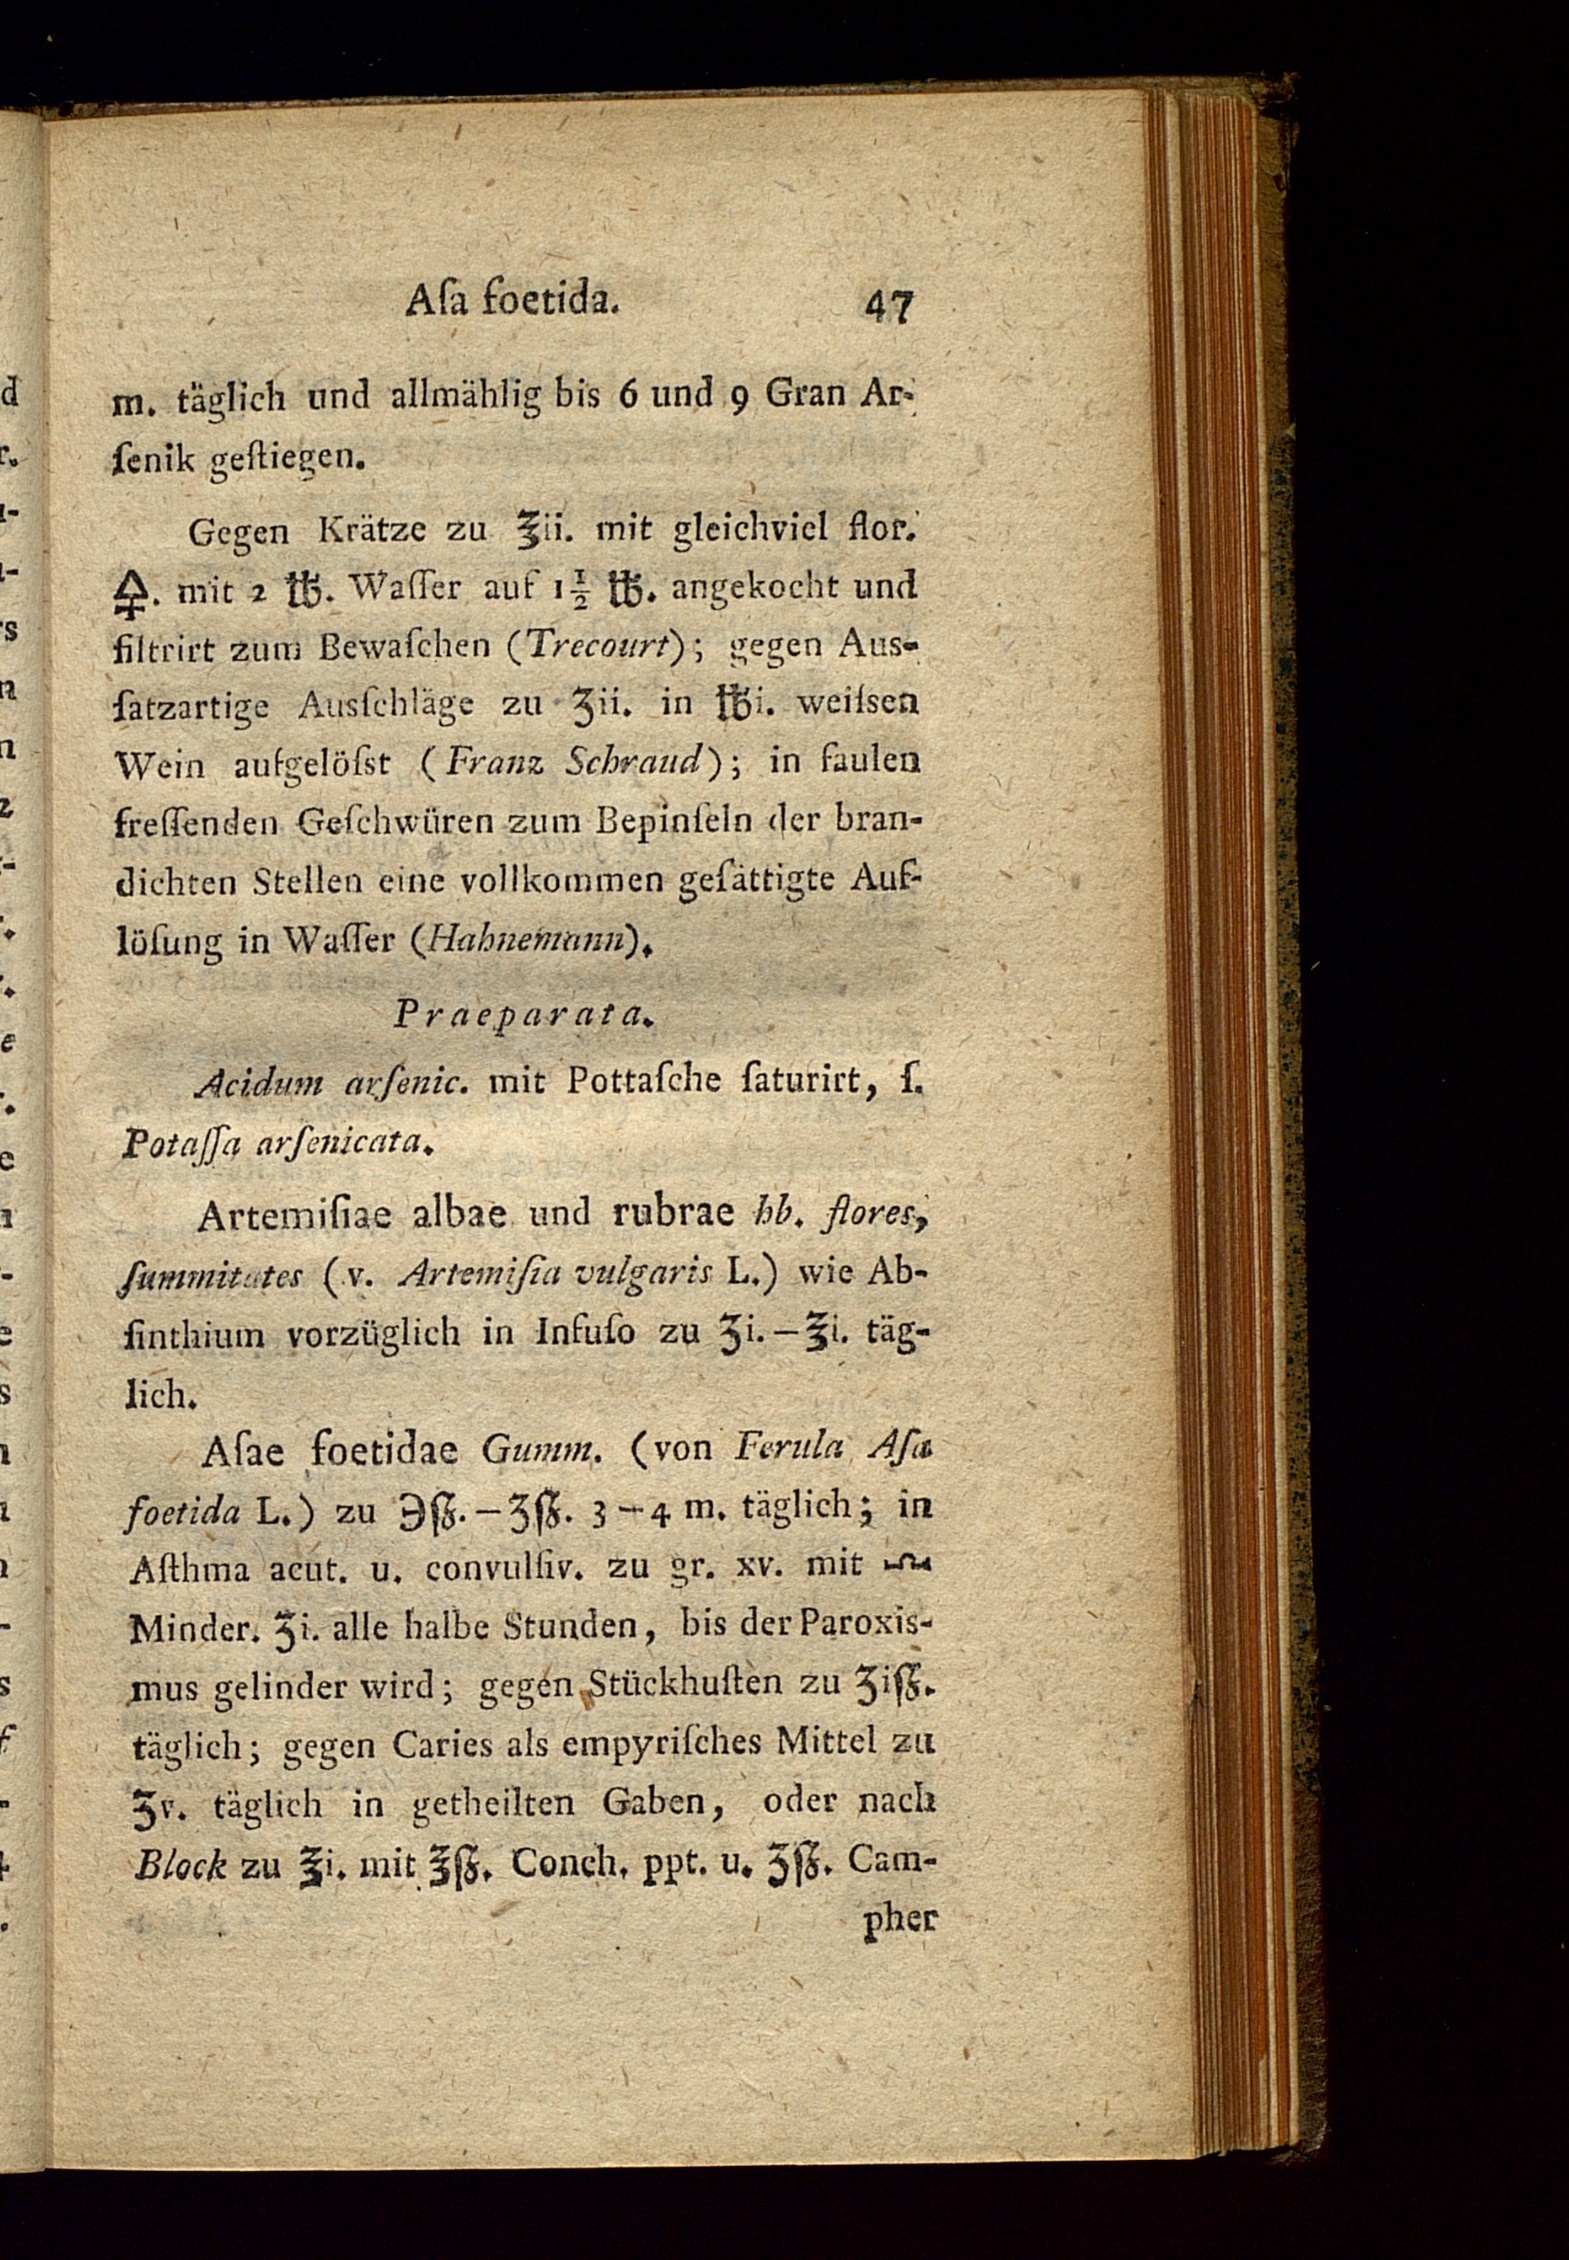 Aſa foetida. 47
m. täglich und allmählig bis 6 und 9 Gran Ar-
ſenik geſtiegen.
Gegen Krätze zu ℥ii. mit gleichviel flor.
🜍. mit 2 ℔. Waſſer auf 1½ ℔. angekocht und
filtrirt zum Bewaſchen (Trecourt); gegen Aus-
ſatzartige Ausſchläge zu ʒii. in ℔i. weiſsen
Wein aufgelöſst (Franz Schraud); in faulen
freſſenden Geſchwüren zum Bepinſeln der bran-
dichten Stellen eine vollkommen geſättigte Auf-
löſung in Waſſer (Hahnemann).
Praeparata.
Acidum arſenic. mit Pottaſche ſaturirt, ſ.
Potaſſa arſenicata.
Artemiſiae albae und rubrae hb. flores,
ſummitates (v. Artemiſia vulgaris L.) wie Ab-
ſinthium vorzüglich in Infuſo zu ʒi.—℥i. täg-
lich.
Aſae foetidae Gumm. (von Ferula Aſa
foetida L.) zu ℈ſß.—ʒſß. 3—4 m. täglich; in
Aſthma acut. u. convulſiv. zu gr. xv. mit
Minder. ℥i. alle halbe Stunden, bis der Paroxis-
mus gelinder wird; gegen Stückhuſten zu ʒiſß.
täglich; gegen Caries als empyriſches Mittel zu
ʒv. täglich in getheilten Gaben, oder nach
Block zu ℥i. mit ℥ſß. Conch. ppt. u. ʒſß. Cam-
pher